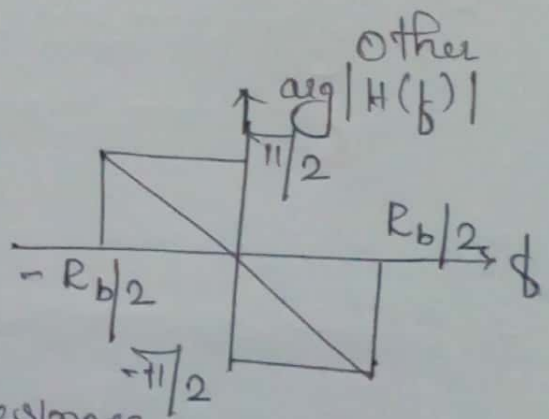 Other
arg|H(f)|
π/2
Rb/2
f
- Rb/2
-π/2